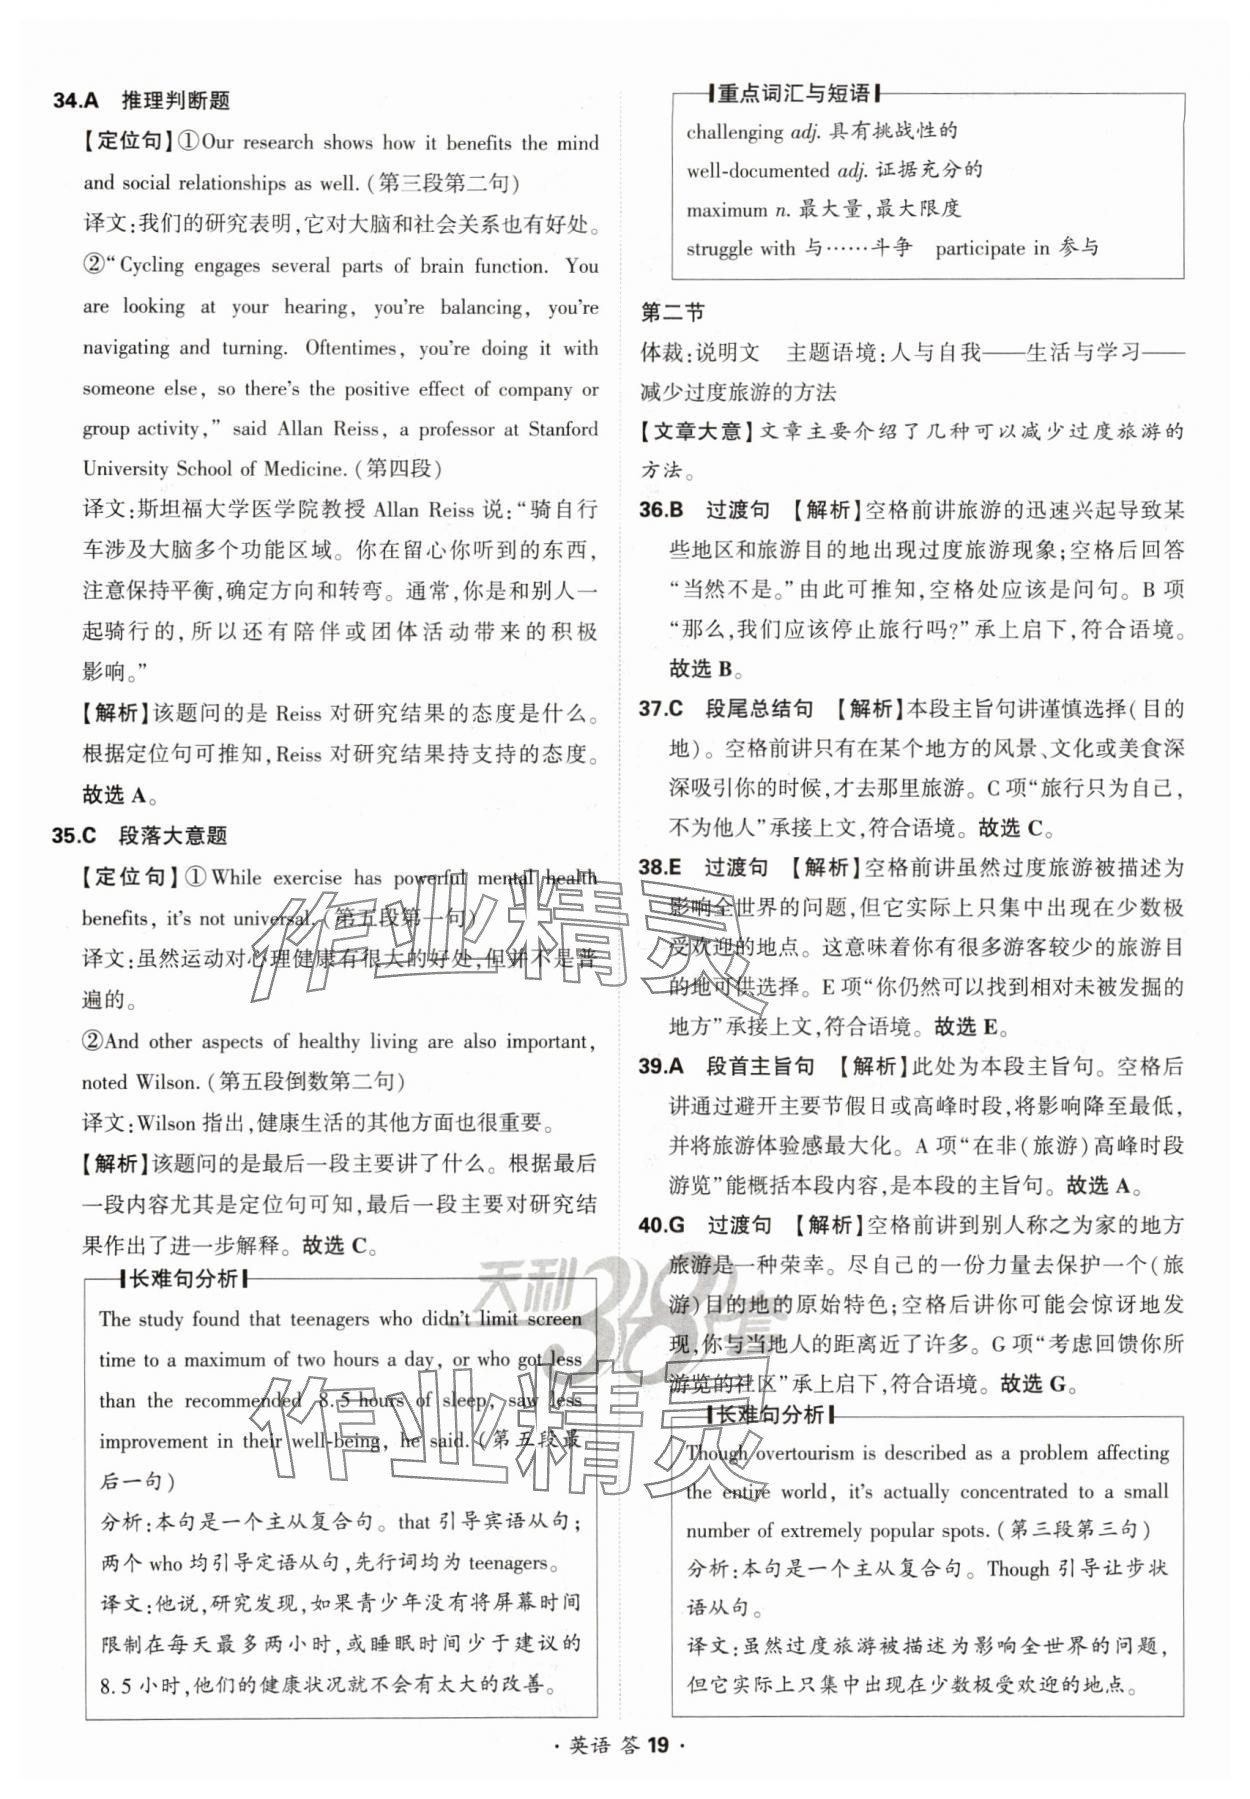 34.A 推理判断题
【定位句】①Our research shows how it benefits the mind
and social relationships as well.(第三段第二句)
译文:我们的研究表明,它对大脑和社会关系也有好处。
②“Cycling engages several parts of brain function. You
are looking at your hearing, you're balancing, you're
navigating and turning. Oftentimes, you're doing it with
someone else, so there's the positive effect of company or
group activity,” said Allan Reiss, a professor at Stanford
University School of Medicine.(第四段)
译文:斯坦福大学医学院教授 Allan Reiss 说:“骑自行
车涉及大脑多个功能区域。你在留心你听到的东西,
注意保持平衡,确定方向和转弯。通常,你是和别人一
起骑行的,所以还有陪伴或团体活动带来的积极
影响。”
【解析】该题问的是 Reiss 对研究结果的态度是什么。
根据定位句可推知,Reiss 对研究结果持支持的态度。
故选 A。
35.C 段落大意题
【定位句】①While exercise has powerful mental health
benefits, it's not universal.(第五段第一句)
译文:虽然运动对心理健康有很大的好处,但并不是普
遍的。
②And other aspects of healthy living are also important,
noted Wilson.(第五段倒数第二句)
译文:Wilson 指出,健康生活的其他方面也很重要。
【解析】该题问的是最后一段主要讲了什么。根据最后
一段内容尤其是定位句可知,最后一段主要对研究结
果作出了进一步解释。故选 C。
长难句分析
The study found that teenagers who didn't limit screen
time to a maximum of two hours a day, or who got less
than the recommended 8.5 hours of sleep, saw less
improvement in their well-being, he said.(第五段最
后一句)
分析:本句是一个主从复合句。that 引导宾语从句;
两个 who 均引导定语从句,先行词均为 teenagers。
译文:他说,研究发现,如果青少年没有将屏幕时间
限制在每天最多两小时,或睡眠时间少于建议的
8.5 小时,他们的健康状况就不会有太大的改善。
重点词汇与短语
challenging adj. 具有挑战性的
well-documented adj. 证据充分的
maximum n. 最大量,最大限度
struggle with 与……斗争 participate in 参与
第二节
体裁:说明文 主题语境:人与自我——生活与学习——
减少过度旅游的方法
【文章大意】文章主要介绍了几种可以减少过度旅游的
方法。
36.B 过渡句 【解析】空格前讲旅游的迅速兴起导致某
些地区和旅游目的地出现过度旅游现象;空格后回答
“当然不是。”由此可推知,空格处应该是问句。B 项
“那么,我们应该停止旅行吗?”承上启下,符合语境。
故选 B。
37.C 段尾总结句 【解析】本段主旨句讲谨慎选择(目的
地)。空格前讲只有在某个地方的风景、文化或美食深
深吸引你的时候,才去那里旅游。C 项“旅行只为自己,
不为他人”承接上文,符合语境。故选 C。
38.E 过渡句 【解析】空格前讲虽然过度旅游被描述为
影响全世界的问题,但它实际上只集中出现在少数极
受欢迎的地点。这意味着你有很多游客较少的旅游目
的地可供选择。E 项“你仍然可以找到相对未被发掘的
地方”承接上文,符合语境。故选 E。
39.A 段首主旨句 【解析】此处为本段主旨句。空格后
讲通过避开主要节假日或高峰时段,将影响降至最低,
并将旅游体验感最大化。A 项“在非(旅游)高峰时段
游览”能概括本段内容,是本段的主旨句。故选 A。
40.G 过渡句 【解析】空格前讲到别人称之为家的地方
旅游是一种荣幸。尽自己的一份力量去保护一个(旅
游)目的地的原始特色;空格后讲你可能会惊讶地发
现,你与当地人的距离近了许多。G 项“考虑回馈你所
游览的社区”承上启下,符合语境。故选 G。
长难句分析
Though overtourism is described as a problem affecting
the entire world, it's actually concentrated to a small
number of extremely popular spots.(第三段第三句)
分析:本句是一个主从复合句。Though 引导让步状
语从句。
译文:虽然过度旅游被描述为影响全世界的问题,
但它实际上只集中出现在少数极受欢迎的地点。
作业精灵
天利38套
作业精灵
· 英语 答 19 ·